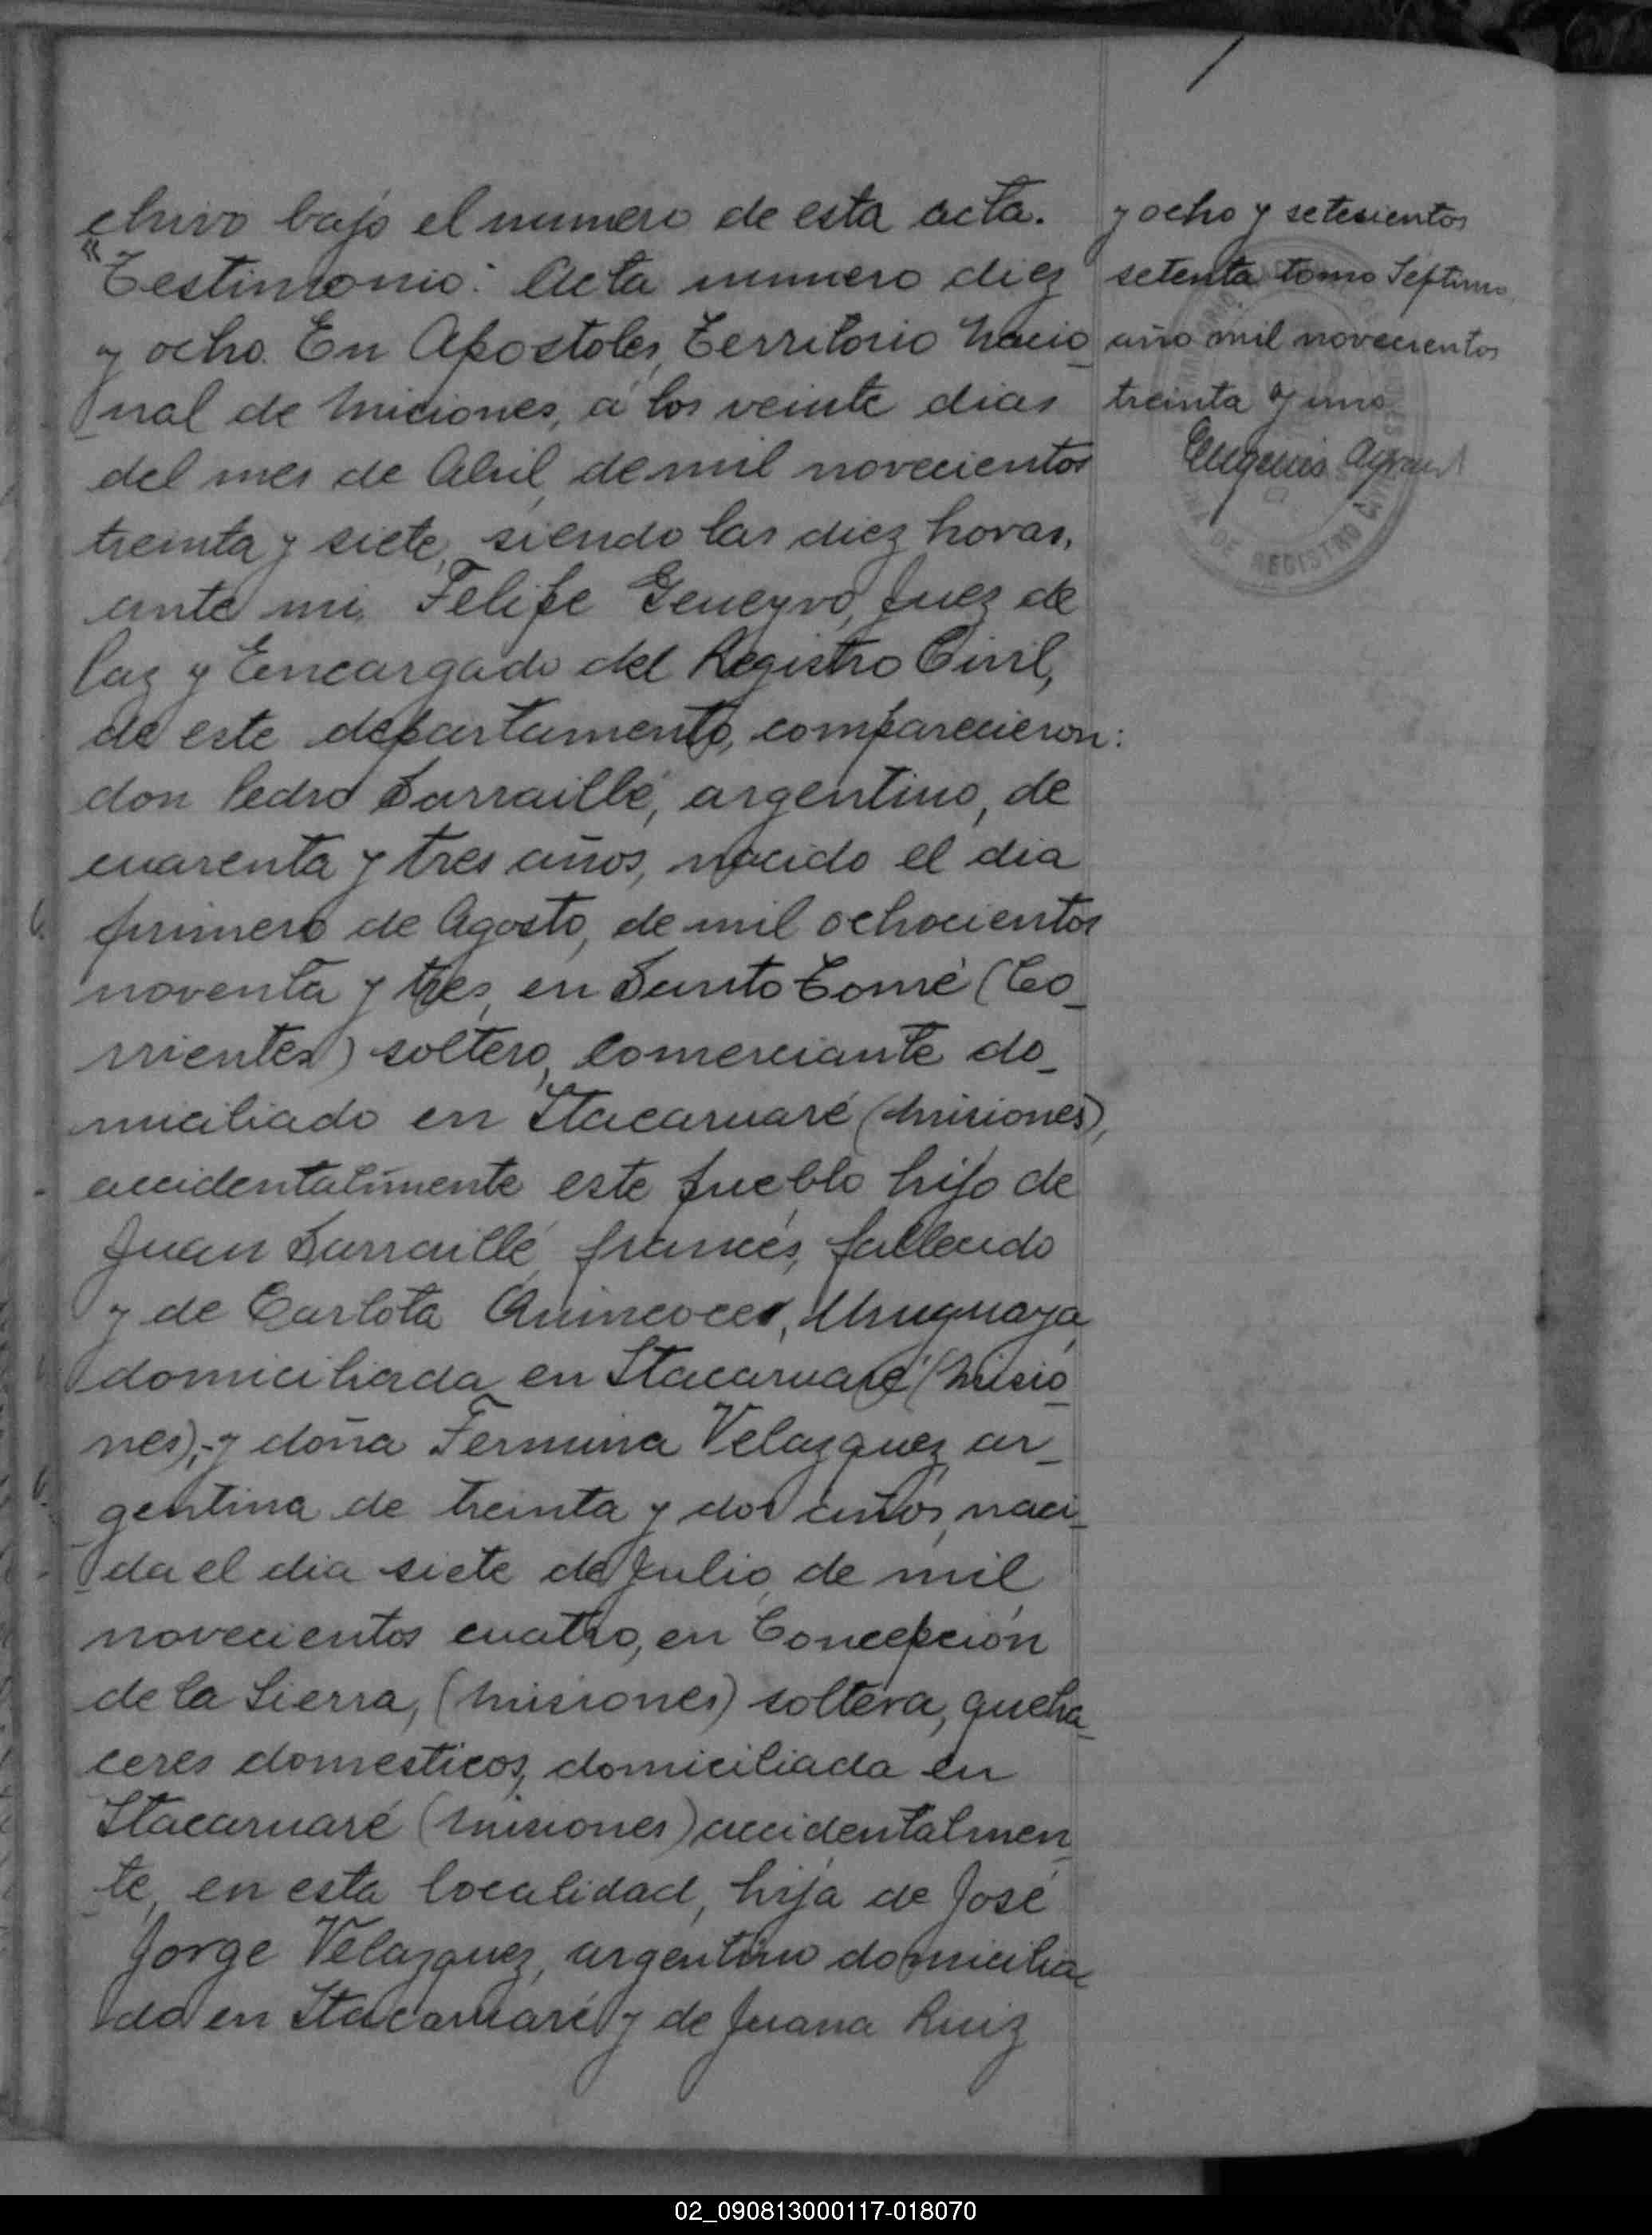 chivo bajo el numero de esta acta.
"Testimonio: Acta numero diez
y ocho. En Apostoles, Territorio Nacio_
nal de Miciones, á los veinte dias
del mes de Abril, de mil novecientos
treinta y siete, siendo las diez horas,
ante mi, Felipe Geneyro, Juez de
Paz y Encargado del Registro Civil,
de este departamento, comparecieron:
don Pedro Sarraillé, argentino, de
cuarenta y tres años, nacido el dia
primero de Agosto, de mil ochocientos
noventa y tres, en Santo Tomé (Co_
rrientes) soltero, comerciante do_
miciliado en Itacaruaré (Misiones),
accidentalmente este pueblo hijo de
Juan Sarraillé, francés, fallecido
y de Carlota Quincoces, Uruguaya,
domiciliada en Itacaruaré (Misio_
nes),- y doña Fermina Velazquez, ar_
gentina de treinta y dos años, naci_
da el dia siete de Julio, de mil
novecientos cuatro, en Concepción
de la Sierra, (Misiones) soltera, queha_
ceres domesticos, domiciliada en
Itacaruaré (Misiones) accidentalmen_
te, en esta localidad, hija de José
Jorge Velazquez, argentino domicilia_
do en Itacaruaré y de Juana Ruiz
y ocho y setesientos
setenta tomo Septimo
año mil novecientos
treinta y uno
Eugenio
DE REGISTRO CIVIL
02_090813000117-018070